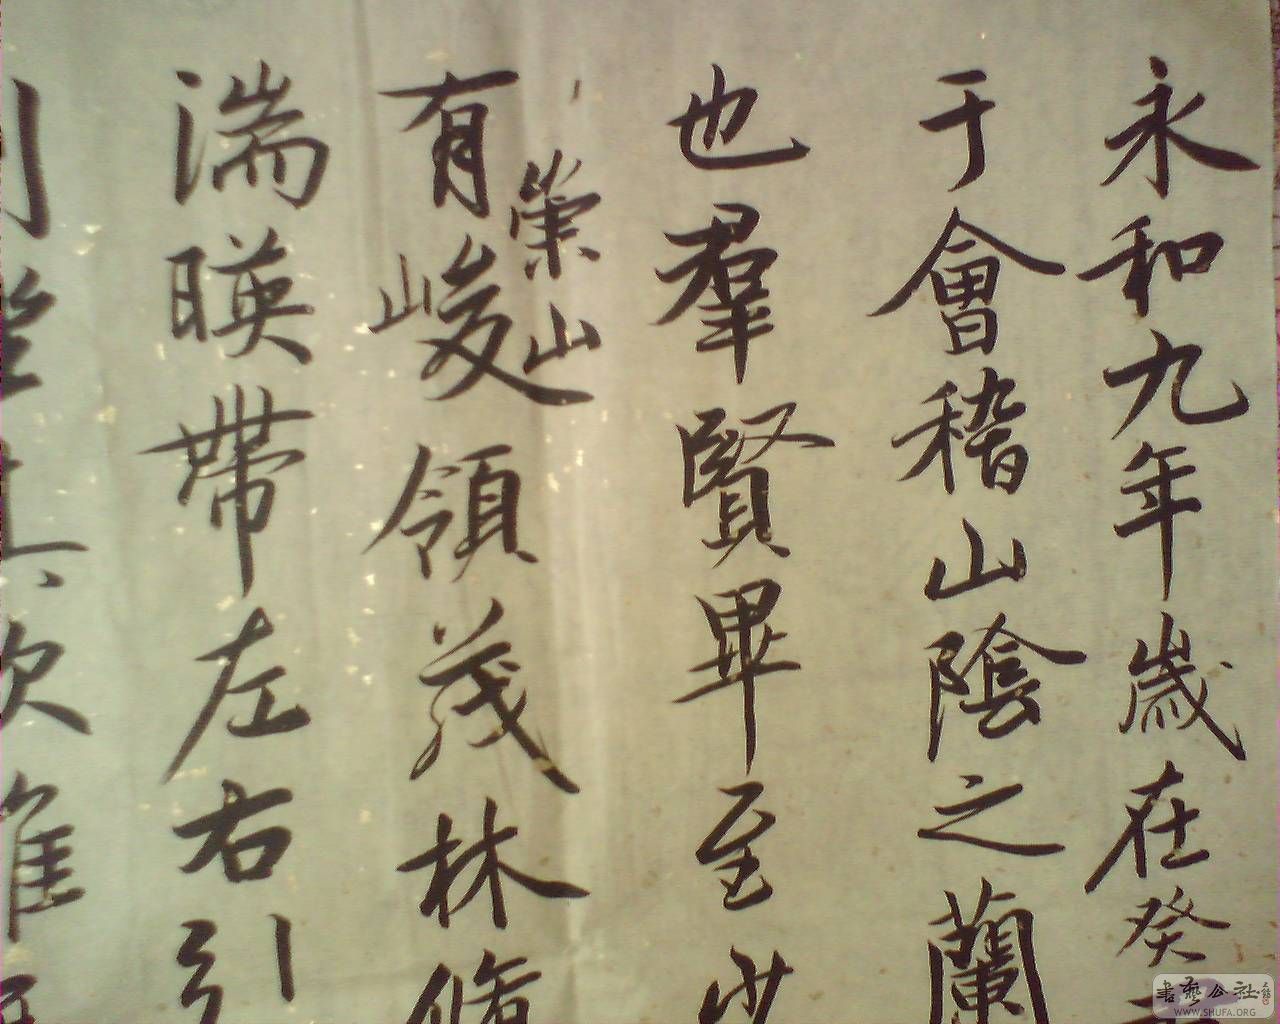 永和九年歲在癸
于會稽山陰之蘭
也羣賢畢至少
崇山
有峻領茂林脩
湍暎帶左右引
列坐其次雖
書藝公社
WWW.SHUFA.ORG